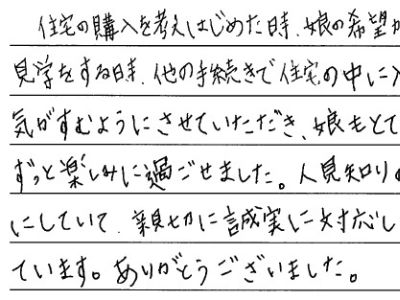 住宅の購入を考えはじめた時、娘の希望が
見学をする時、他の手続きで住宅の中に入
気がすむようにさせていただき、娘もとて
ずっと楽しみに過ごせました。人見知りの
にしていて、親切に誠実に対応し
ています。ありがとうございました。